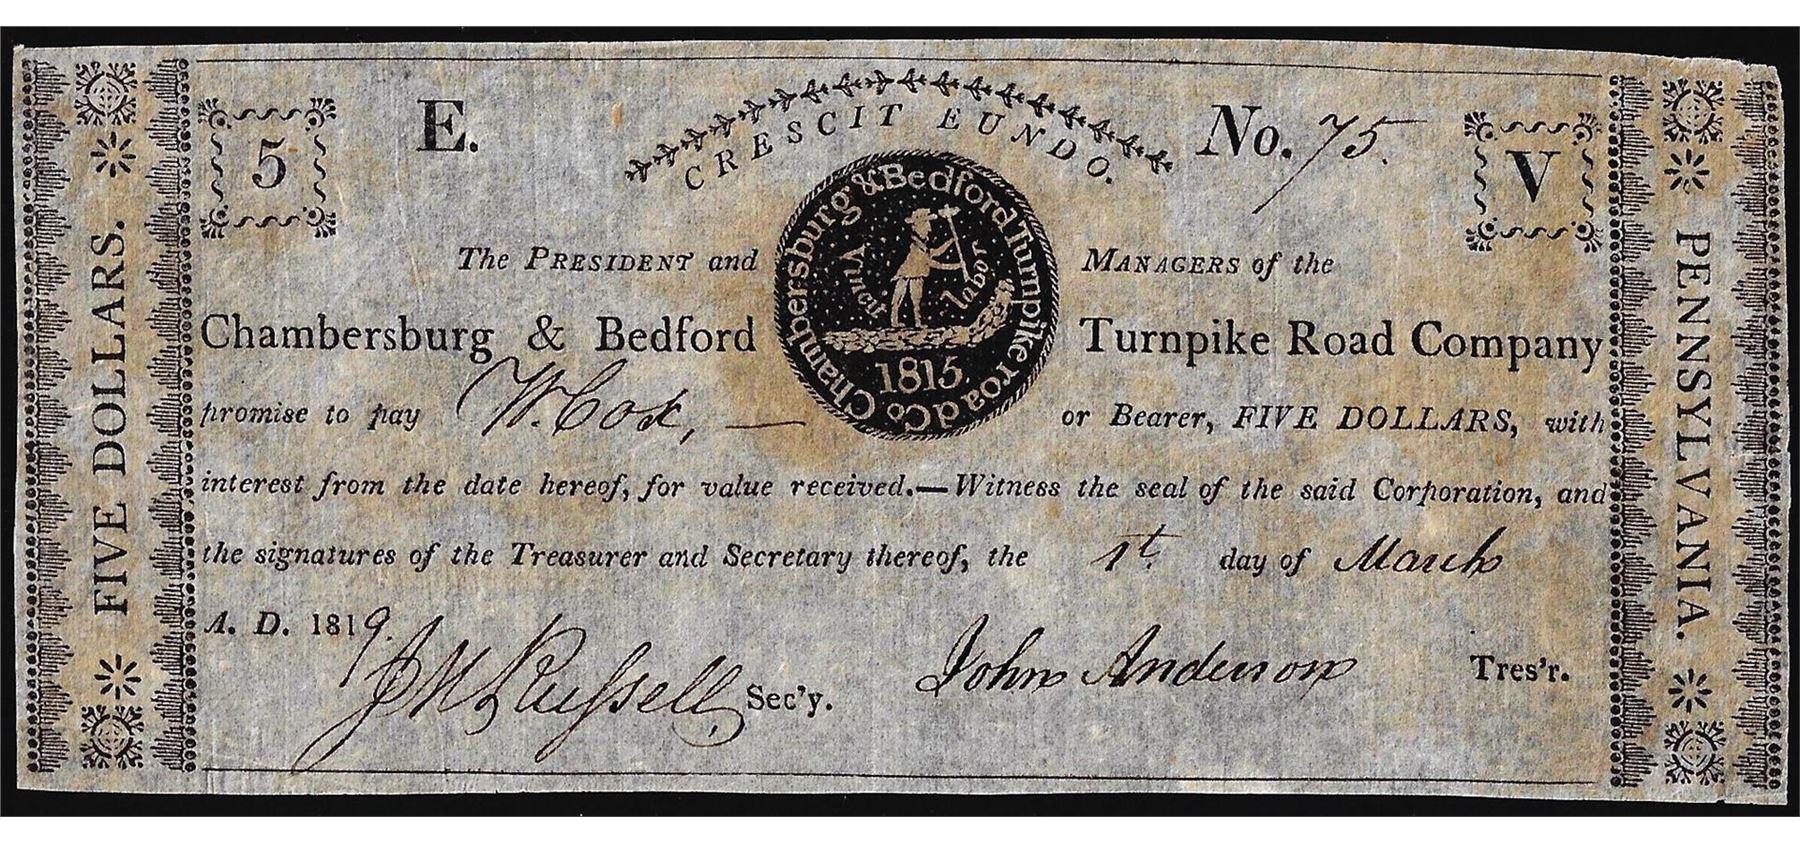 CRESCIT EUNDO.
5 E. No. 75. V
FIVE DOLLARS.
The PRESIDENT and MANAGERS of the
Chambersburg & Bedford Turnpike Road Company
Chambersburg & Bedford Turnpike road Co
labor
1815
promise to pay W. Cox, — or Bearer, FIVE DOLLARS, with
interest from the date hereof, for value received.—Witness the seal of the said Corporation, and
the signatures of the Treasurer and Secretary thereof, the 1st. day of March
A. D. 1819.
J M Russell, Sec'y. John Anderson Tres'r.
PENNSYLVANIA.